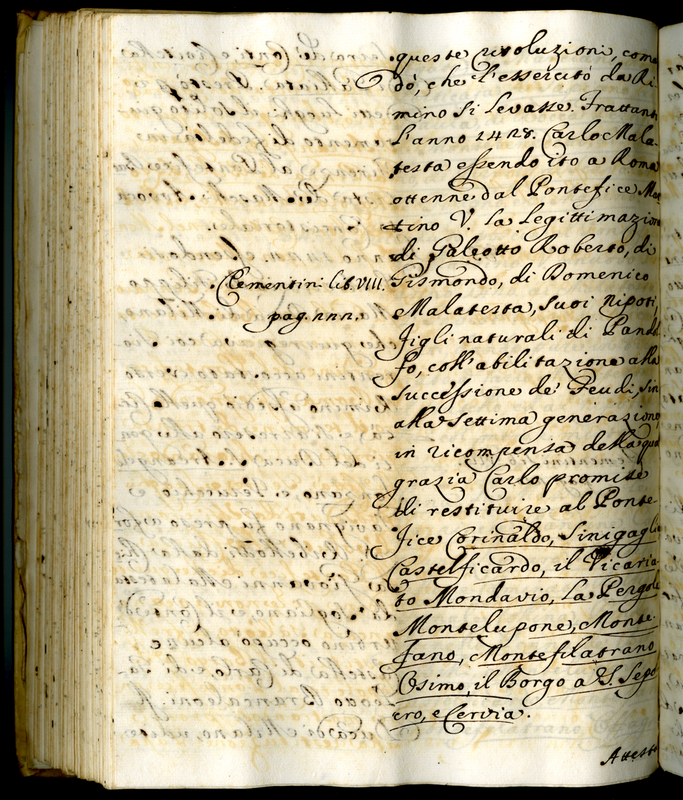 queste rivoluzioni, coman
dò, che l'essercito da Ri
mino si levasse. Frattant
l'anno 1428. Carlo Mala-
testa essendo ito a Roma
ottenne dal Pontefice Mar
tino V. la legittimazion
di Galeotto Roberto, di
Clementin: lib. VIII.
pag.
Gismondo, di Domenico
Malatesta, suoi nipoti,
figli naturali di Pandol
fo, coll'abilitazione alla
successione de' Feudi, sin
alla settima generazione
in ricompensa della qual
grazia Carlo promise
di restituire al Ponte-
fice Corinaldo, Sinigaglia
Castelficardo, il Vicaria
to Mondavio, La Pergola
Montelupone, Monte
Fano, Montefilatrano
Osimo, il Borgo a S. Sepol
cro, e Cervia.
Attesta